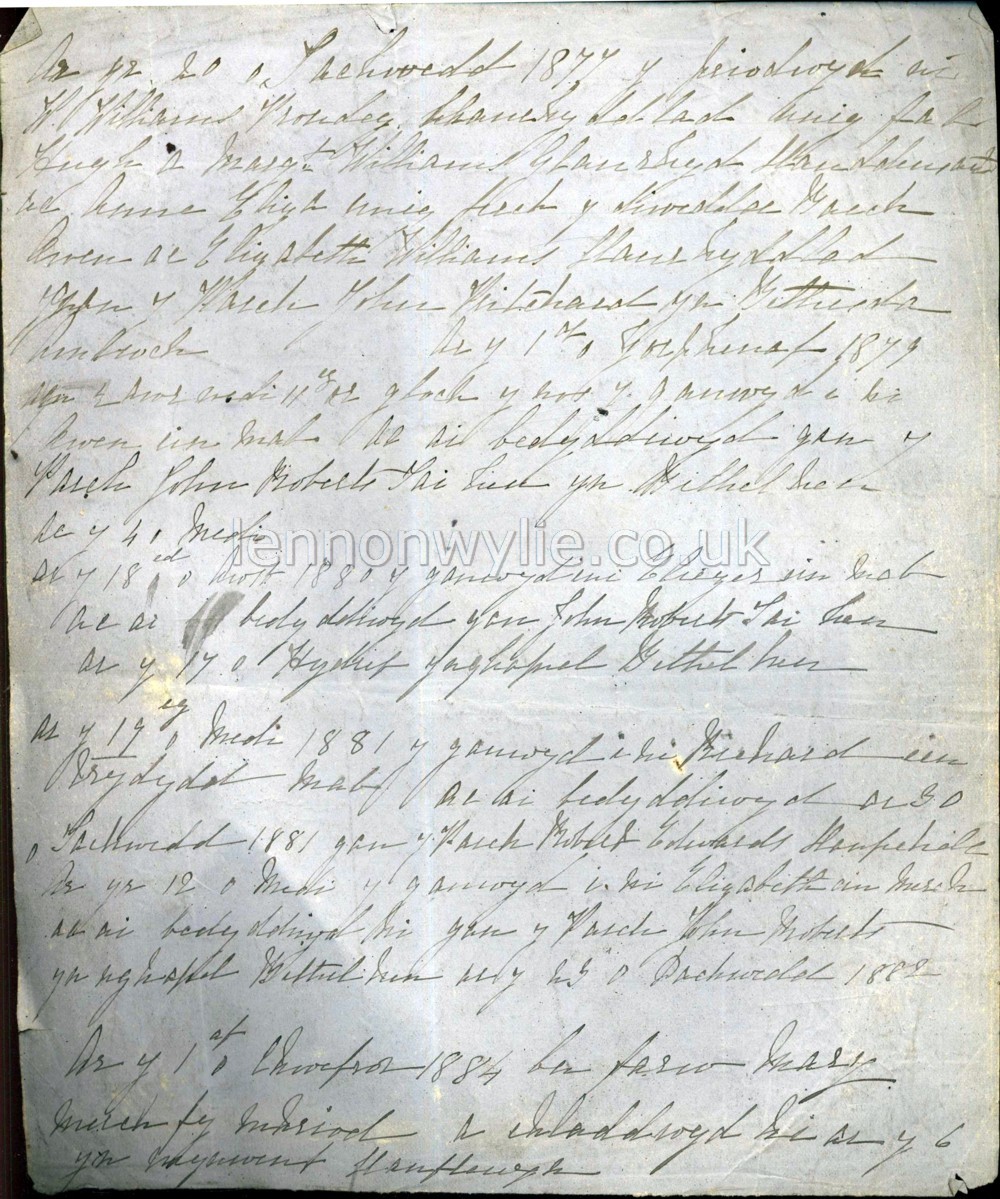 Ar yr 20 o Tachwedd 1877 y priodwyd ni
W. Williams unig fab
Hugh a Margt Williams Glanrhyd
ac Anne Eliza unig ferch y diweddar Barch
Owen ac Elizabeth Williams Llanrhyddlad
gan y Parch John Pritchard yn
Amlwch Ar y 1af o Gorphenaf 1879
awr wedi 11eg or gloch y nos y ganwyd i ni
Owen ein mab ac ai bedyddiwyd gan y
Parch John Roberts Tai hen yn Bethel hen
ar y 4 o Medi
ar y 18ed o Awst 1880 y ganwyd ini Eliezer ein mab
ac ai bedyddiwyd gan John Roberts Tai hen
ar y 17 o Hydref ynghapel Bethel hen
ar y 19eg o Medi 1881 y ganwyd i ni Richard ein
Trydydd mab ac ai bedyddiwyd ar 30
o Tachwedd 1881 gan y Parch Robert Edwards
Ar yr 12 o Medi y ganwyd i ni Elizabeth ein merch
ac ai bedyddiwyd hi gan y Parch John Roberts
yn nghapel Bethel hen ar y 23 o Tachwedd 1882
Ar y 1af o Chwefror 1884 bu farw Mary
merch fy mhriod a chladdwyd hi ar y 6
yn mynwent Llanfflewyn
lennonwylie.co.uk